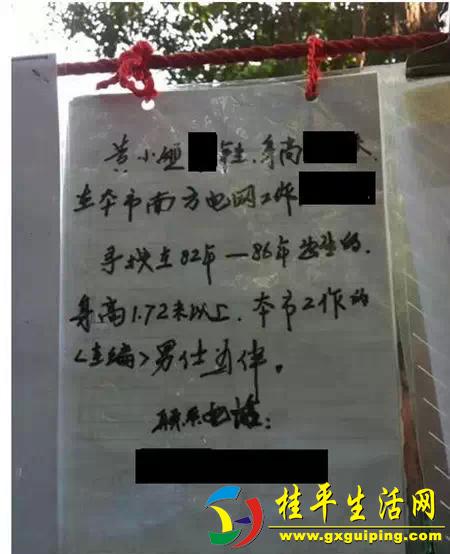 黄小姐 年生.身高 米.
在本市南方电网工作
寻找在82年—86年出生的.
身高1.72米以上.本市工作的
<在编>男仕为伴。
联系电话:
桂平生活网
www.gxguiping.com